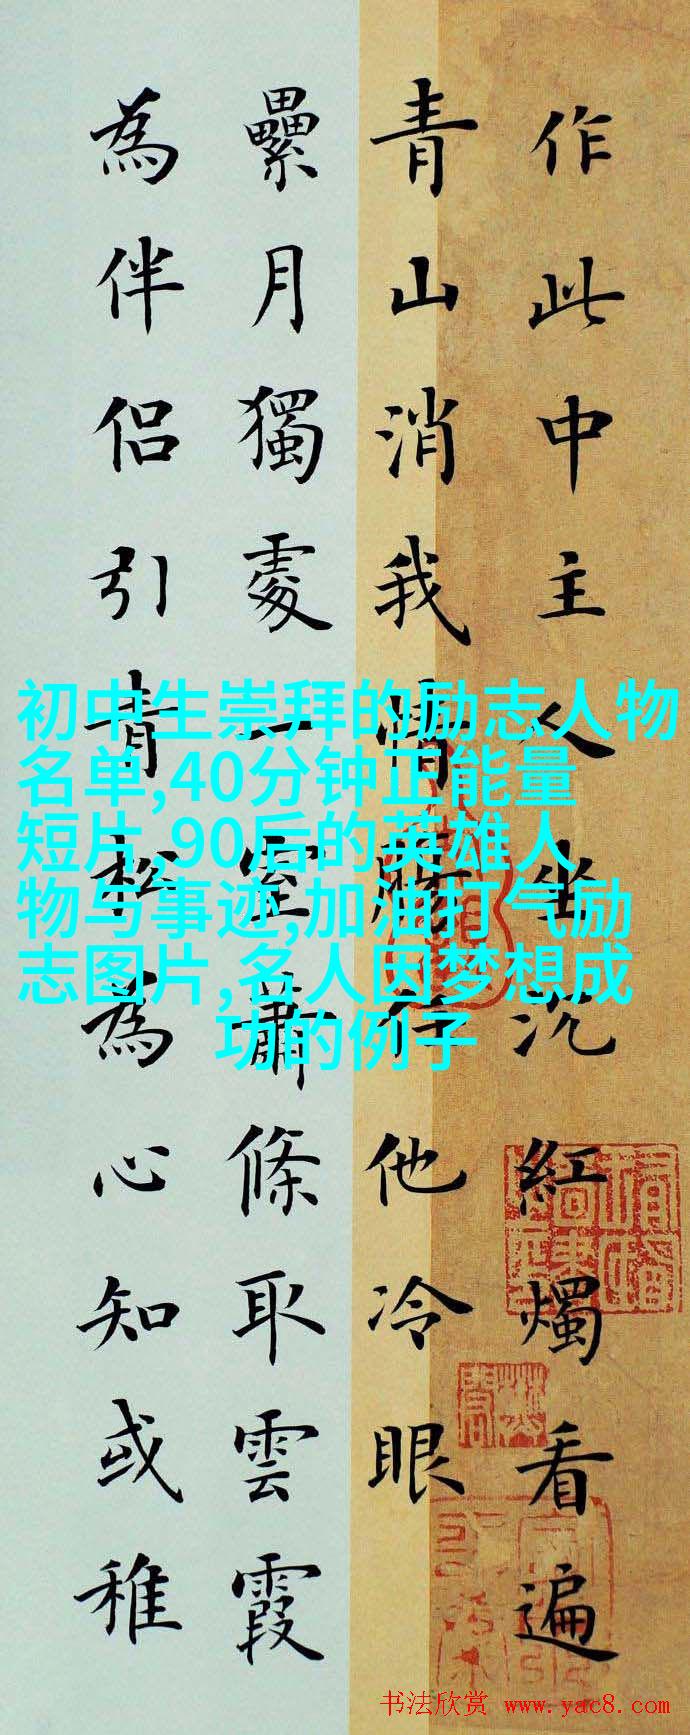 作此中主人坐沉紅燭看遍
青山消我情腸任他冷眼
纍月獨處一室蕭條取雲霞
為伴侶引青松為心知或稚
初中生崇拜的励志人物
名单,40分钟正能量
短片,90后的英雄人
物与事迹,加油打气励
志图片,名人因梦想成
功的例子
书法欣赏 www.yac8.com